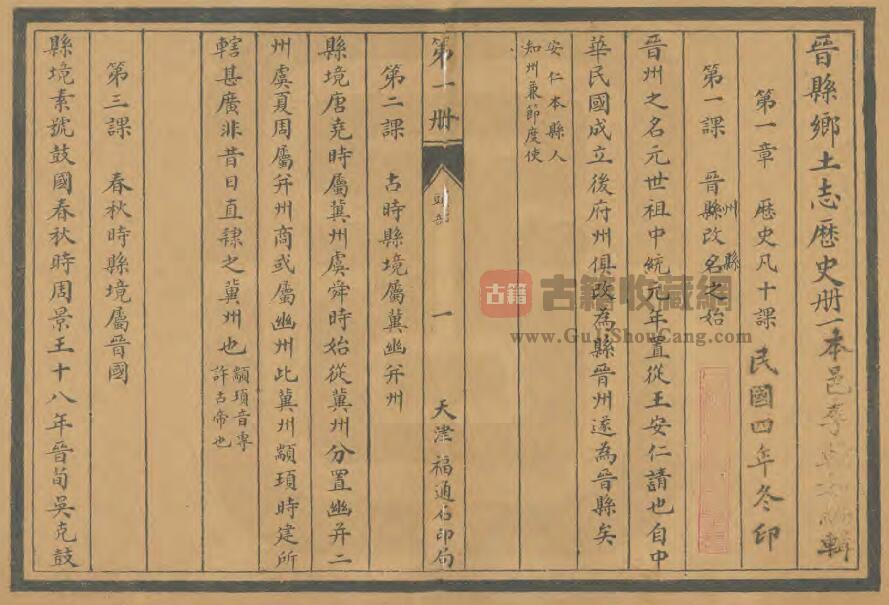 晉縣鄉土志歷史册一 本邑李
輯
第一章 歷史凡十課 民國四年冬印
第一課 晉縣改名之始
州 縣
晉州之名元世祖中統元年置從王安仁請也自中
華民國成立後府州俱改為縣晉州遂為晉縣矣
安仁本縣人
知州兼節度使
第一册 一 天津福通石印局
第二課 古時縣境屬冀幽并州
縣境唐堯時屬冀州虞舜時始從冀州分置幽并二
州虞夏周屬并州商或屬幽州此冀州顓頊時建所
轄甚廣非昔日直隸之冀州也 顓頊音專
許古帝也
第三課 春秋時縣境屬晉國
縣境素號鼓國春秋時周景王十八年晉荀吳克鼓
古籍
古籍收藏網
www.GuJiShouCang.com